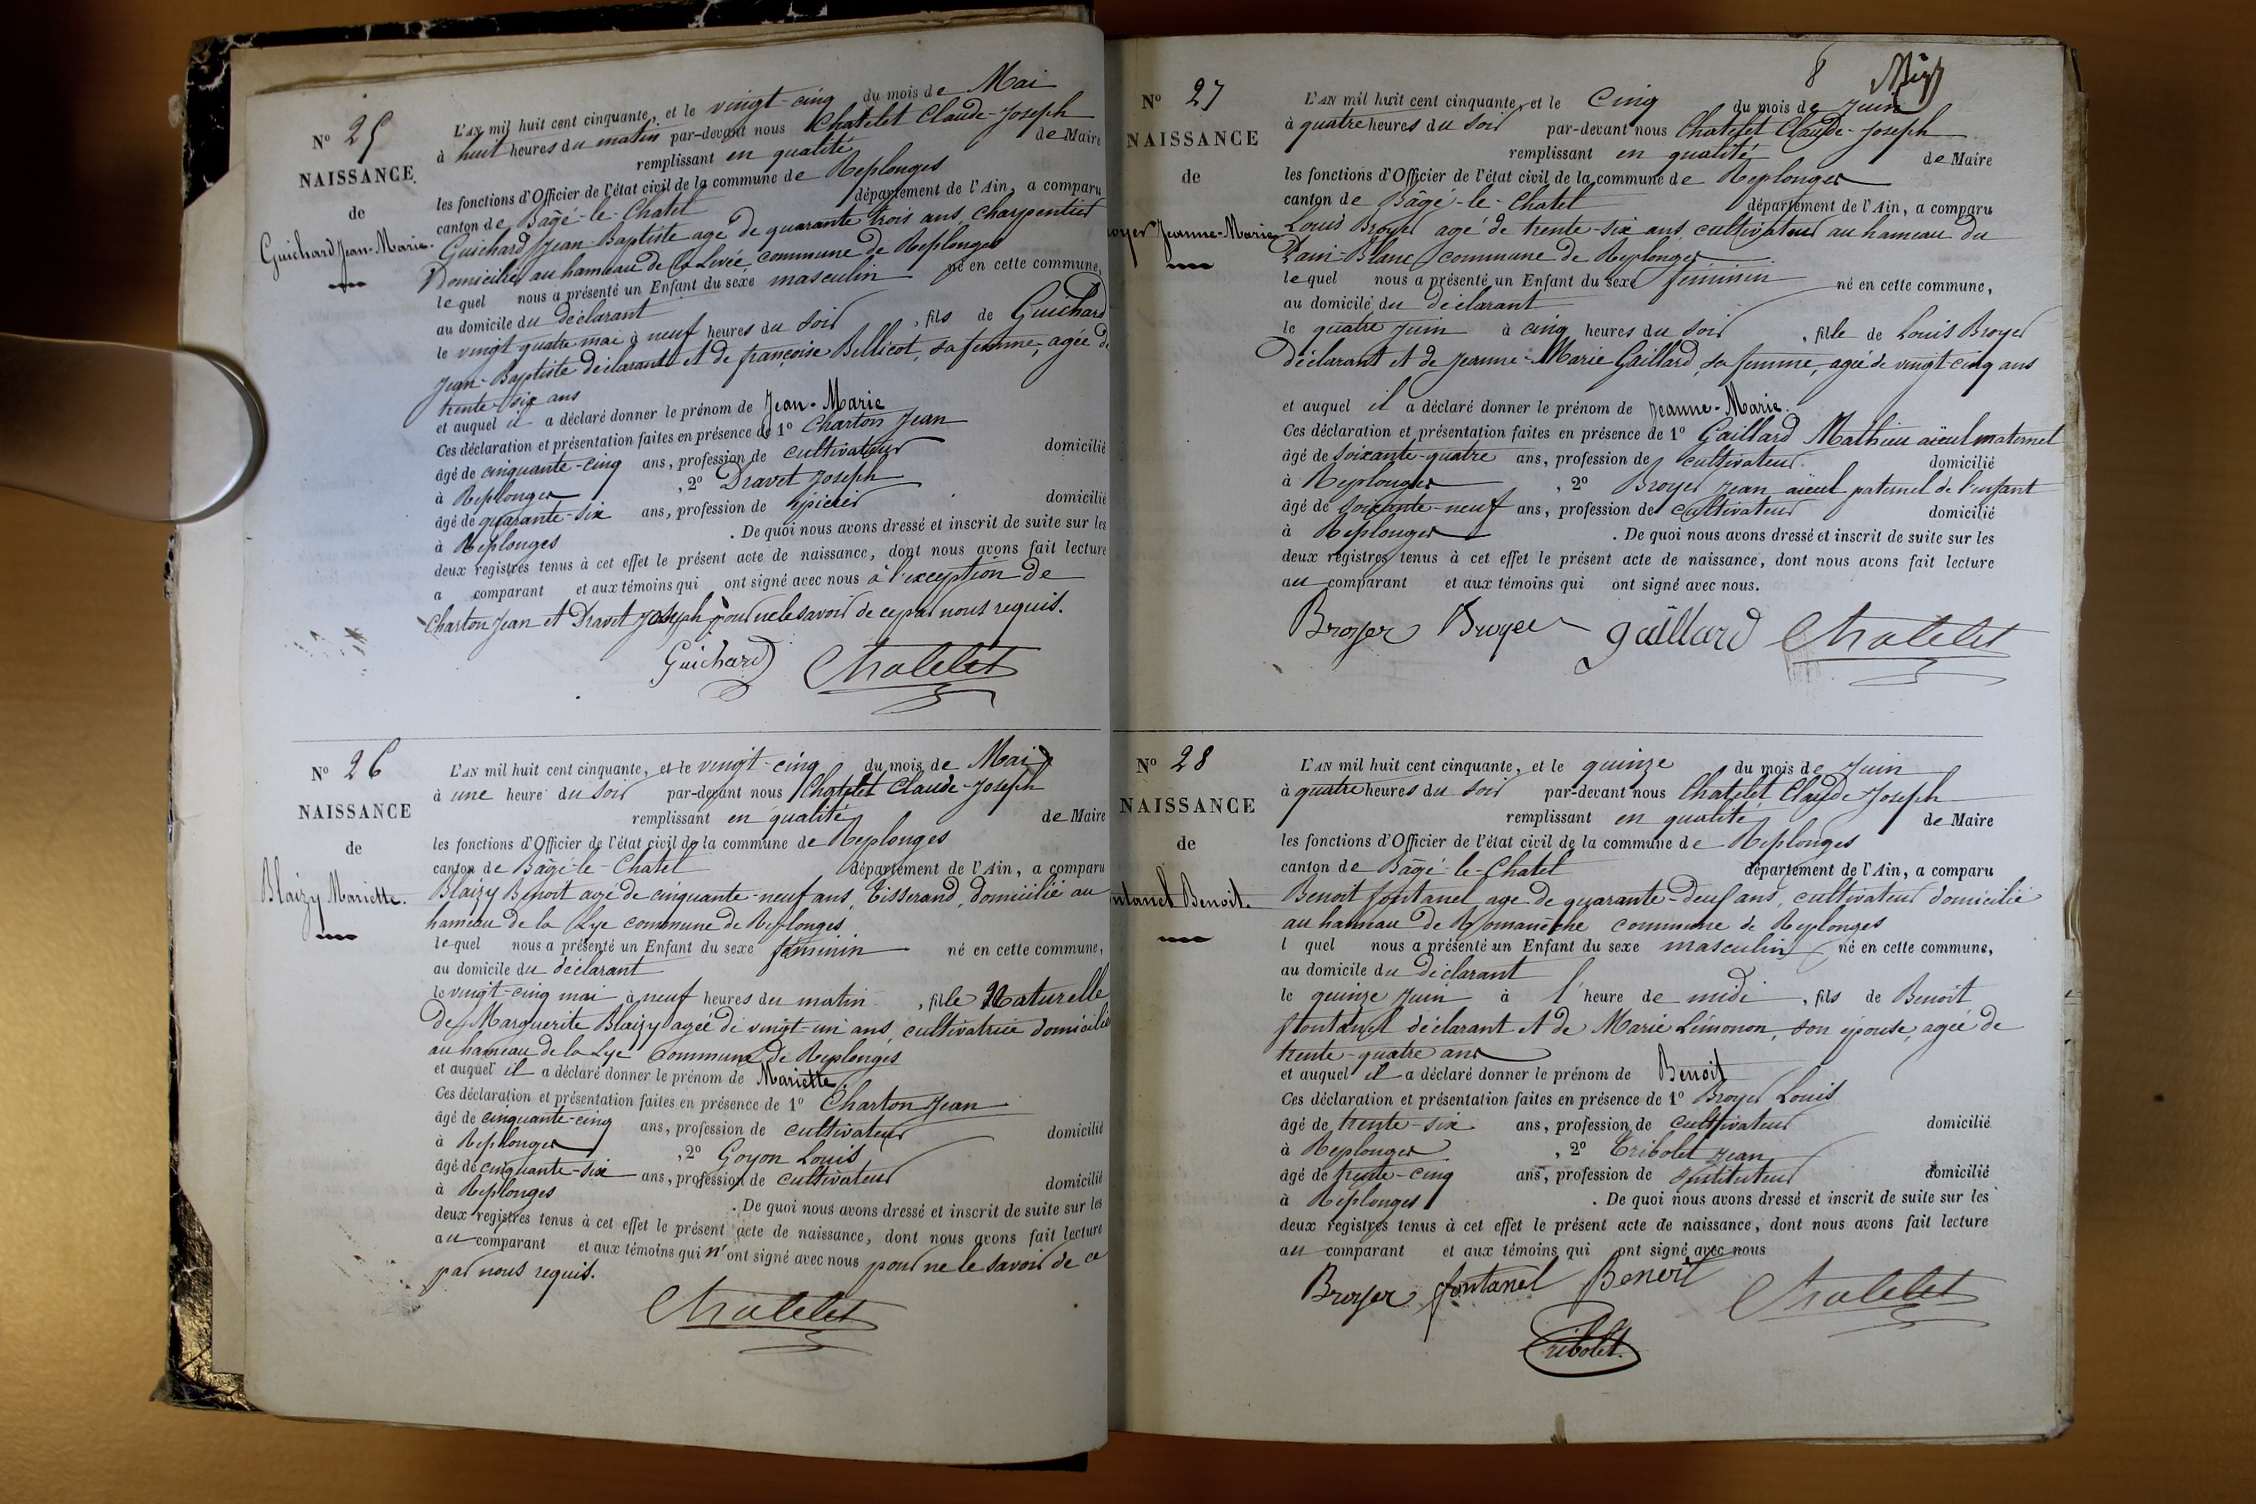 N° 25
NAISSANCE
de
Guichard Jean-Marie.
L'AN mil huit cent cinquante, et le vingt-cinq du mois de Mai
à huit heures du matin par-devant nous Chatelet Claude-Joseph
remplissant en qualité de Maire
les fonctions d'Officier de l'état civil de la commune de Replonges
canton de Bâgé-le-Chatel département de l'Ain, a comparu
Guichard Jean-Baptiste agé de quarante-trois ans, charpentier
Domicilié au hameau de la Levée commune de Replonges
lequel nous a présenté un Enfant du sexe masculin né en cette commune,
au domicile du déclarant
le vingt-quatre mai à neuf heures du soir, fils de Guichard
Jean-Baptiste déclarant et de françoise Bellicot, sa femme, agée de
trente-six ans
et auquel il a déclaré donner le prénom de Jean-Marie
Ces déclaration et présentation faites en présence de 1° Charton Jean
âgé de cinquante-cinq ans, profession de cultivateur domicilié
à Replonges, 2° Dravet Joseph
âgé de quarante-six ans, profession de épicier domicilié
à Replonges. De quoi nous avons dressé et inscrit de suite sur les
deux registres tenus à cet effet le présent acte de naissance, dont nous avons fait lecture
a comparant et aux témoins qui ont signé avec nous à l'exception de
Charton Jean et Dravet Joseph pour ne le savoir de ce par nous requis.
Guichard Chatelet
N° 26
NAISSANCE
de
Blaizy Mariette.
L'AN mil huit cent cinquante, et le vingt-cinq du mois de Mai
à une heure du soir par-devant nous Chatelet Claude-Joseph
remplissant en qualité de Maire
les fonctions d'Officier de l'état civil de la commune de Replonges
canton de Bâgé-le-Chatel département de l'Ain, a comparu
Blaizy Benoit agé de cinquante-neuf ans, Tisserand, domicilié au
hameau de la Lye commune de Replonges
lequel nous a présenté un Enfant du sexe féminin né en cette commune,
au domicile du déclarant
le vingt-cinq mai à neuf heures du matin, fille Naturelle
de Marguerite Blaizy agée de vingt-un ans, cultivatrice domiciliée
au hameau de la Lye commune de Replonges
et auquel il a déclaré donner le prénom de Mariette.
Ces déclaration et présentation faites en présence de 1° Charton Jean
âgé de cinquante-cinq ans, profession de cultivateur domicilié
à Replonges, 2° Goyon Louis
âgé de cinquante-six ans, profession de cultivateur domicilié
à Replonges. De quoi nous avons dressé et inscrit de suite sur les
deux registres tenus à cet effet le présent acte de naissance, dont nous avons fait lecture
au comparant et aux témoins qui n'ont signé avec nous pour ne le savoir de ce
par nous requis.
Chatelet
8
N° 27
NAISSANCE
de
oyer Jeanne-Marie
L'AN mil huit cent cinquante, et le Cinq du mois de Juin
à quatre heures du soir par-devant nous Chatelet Claude-Joseph
remplissant en qualité de Maire
les fonctions d'Officier de l'état civil de la commune de Replonges
canton de Bâgé-le-Chatel département de l'Ain, a comparu
Louis Broyer agé de trente-six ans, cultivateur au hameau du
Pain-Blanc commune de Replonges
lequel nous a présenté un Enfant du sexe féminin né en cette commune,
au domicile du déclarant
le quatre juin à cinq heures du soir, fille de Louis Broyer
déclarant et de Jeanne-Marie Gaillard, sa femme, agée de vingt-cinq ans
et auquel il a déclaré donner le prénom de Jeanne-Marie.
Ces déclaration et présentation faites en présence de 1° Gaillard Mathieu aïeul maternel
âgé de soixante-quatre ans, profession de cultivateur domicilié
à Replonges, 2° Broyer Jean aïeul paternel de l'enfant
âgé de soixante-neuf ans, profession de cultivateur domicilié
à Replonges. De quoi nous avons dressé et inscrit de suite sur les
deux registres tenus à cet effet le présent acte de naissance, dont nous avons fait lecture
au comparant et aux témoins qui ont signé avec nous.
Broyer Broyer gaillard Chatelet
N° 28
NAISSANCE
de
ntanel Benoit.
L'AN mil huit cent cinquante, et le quinze du mois de Juin
à quatre heures du soir par-devant nous Chatelet Claude Joseph
remplissant en qualité de Maire
les fonctions d'Officier de l'état civil de la commune de Replonges
canton de Bâgé-le-Chatel département de l'Ain, a comparu
Benoit fontanel age de quarante-deux ans, cultivateur domicilié
au hameau de Romanèche commune de Replonges
l quel nous a présenté un Enfant du sexe masculin né en cette commune,
au domicile du déclarant
le quinze juin à l'heure de midi, fils de Benoit
fontanel déclarant et de Marie Limonon, son épouse, agée de
trente-quatre ans
et auquel il a déclaré donner le prénom de Benoit
Ces déclaration et présentation faites en présence de 1° Broyer Louis
âgé de trente-six ans, profession de cultivateur domicilié
à Replonges, 2° Tribolet Jean
âgé de trente-cinq ans, profession de instituteur domicilié
à Replonges. De quoi nous avons dressé et inscrit de suite sur les
deux registres tenus à cet effet le présent acte de naissance, dont nous avons fait lecture
au comparant et aux témoins qui ont signé avec nous
Broyer fontanel Benoit Chatelet
Tribolet